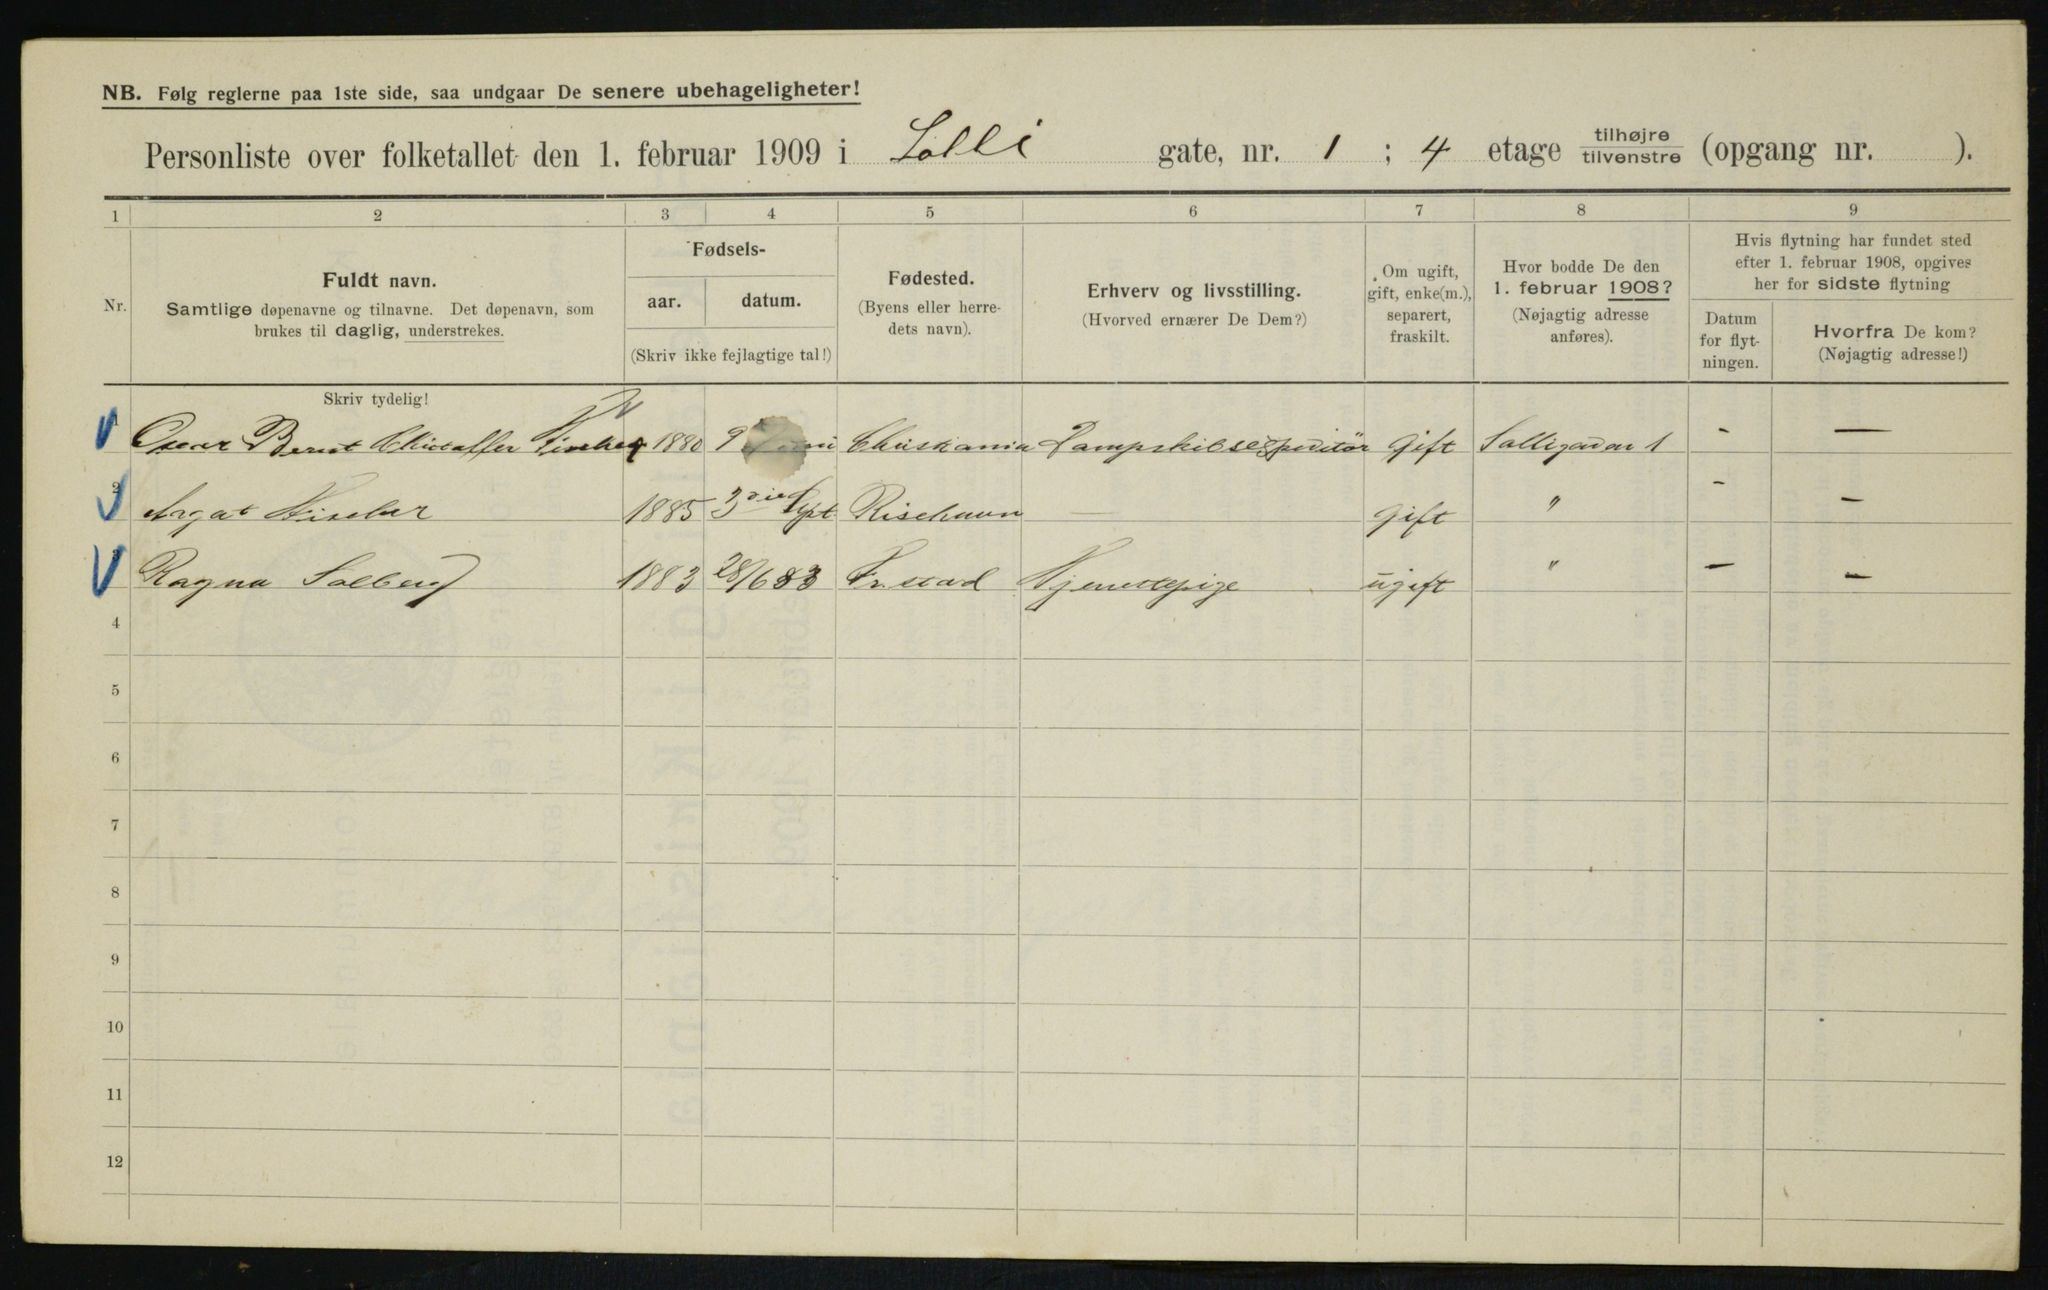 NB. Følg reglerne paa 1ste side, saa undgaar De senere ubehageligheter!
Personliste over folketallet den 1. februar 1909 i Solli gate, nr. 1 ; 4 etage tilhøjre/tilvenstre (opgang nr. ).
1 2 3 4 5 6 7 8 9
Nr.
Fuldt navn.
Samtlige døpenavne og tilnavne. Det døpenavn, som
brukes til daglig, understrekes.
Fødsels-
aar. datum.
(Skriv ikke fejlagtige tal!)
Fødested.
(Byens eller herre-
dets navn).
Erhverv og livsstilling.
(Hvorved ernærer De Dem?)
Om ugift,
gift, enke(m.),
separert,
fraskilt.
Hvor bodde De den
1. februar 1908?
(Nøjagtig adresse
anføres).
Hvis flytning har fundet sted
efter 1. februar 1908, opgives
her for sidste flytning
Datum
for flyt-
ningen.
Hvorfra De kom?
(Nøjagtig adresse!)
Skriv tydelig!
Oscar Bernt 1880 9 Christiania Dampskibsexpeditør gift Solligaden 1 - —
2 Fischer 1885 3die Spt gift " - —
3 Ragna Solberg 1883 28/6 83 Fr.stad Hjenestepige ugift " - —
4
5
6
7
8
9
10
11
12